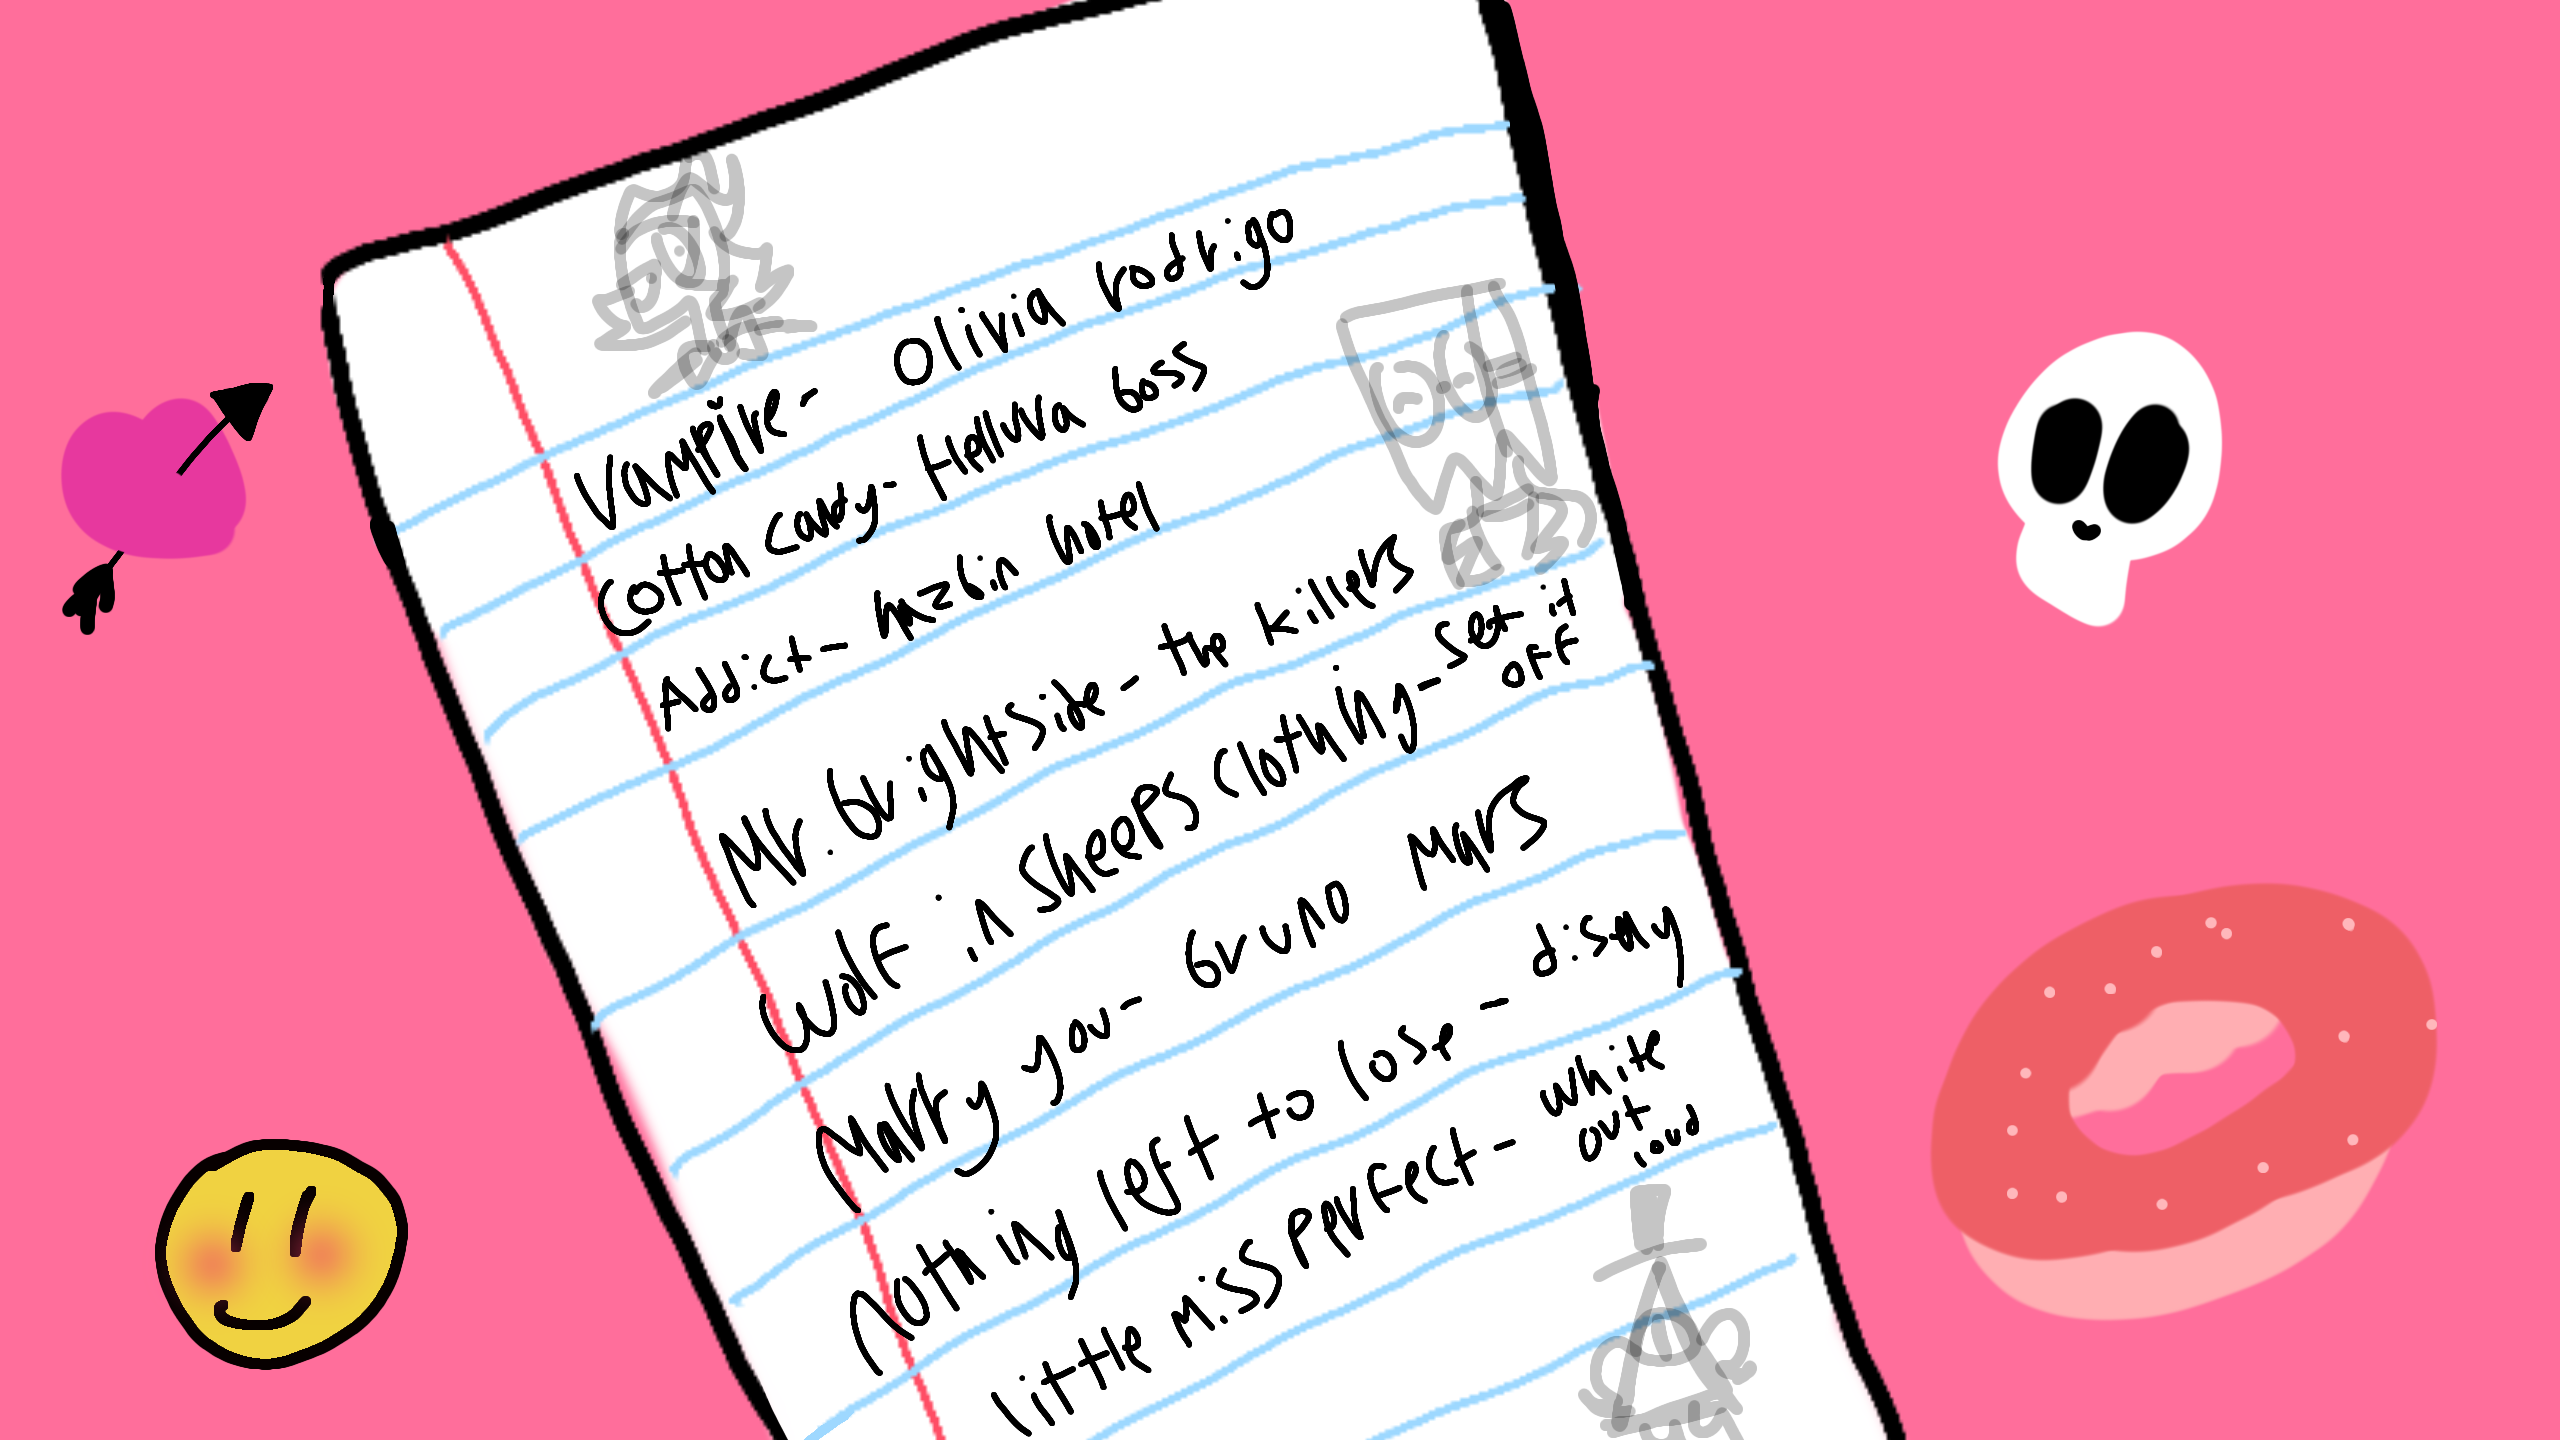 Vampire- Olivia rodrigo
Cotton candy- Helluva boss
Addict- hazbin hotel
Mr. brightside- the killers
Wolf in sheeps clothing- set it
off
Marry you- bruno Mars
nothing left to lose- disny
little miss perfect- white
out
loud